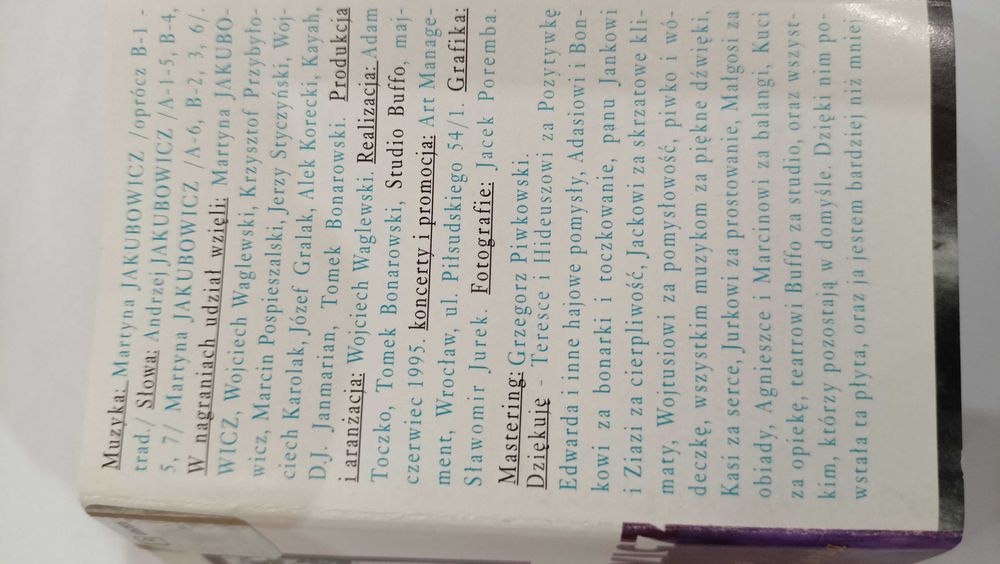 Muzyka: Martyna JAKUBOWICZ /oprócz B-1 -
trad./ Słowa: Andrzej JAKUBOWICZ /A-1-5, B-4,
5, 7/ Martyna JAKUBOWICZ /A-6, B-2, 3, 6/.
W nagraniach udział wzięli: Martyna JAKUBO-
WICZ, Wojciech Waglewski, Krzysztof Przybyło-
wicz, Marcin Pospieszalski, Jerzy Styczyński, Woj-
ciech Karolak, Józef Gralak, Alek Korecki, Kayah,
D.J. Janmarian, Tomek Bonarowski. Produkcja
i aranżacja: Wojciech Waglewski. Realizacja: Adam
Toczko, Tomek Bonarowski, Studio Buffo, maj-
czerwiec 1995. koncerty i promocja: Art Manage-
ment, Wrocław, ul. Piłsudskiego 54/1. Grafika:
Sławomir Jurek. Fotografie: Jacek Poremba.
Mastering: Grzegorz Piwkowski.
Dziękuję - Teresce i Hideuszowi za Pozytywkę
Edwarda i inne hajowe pomysły, Adasiowi i Bon-
kowi za bonarki i toczkowanie, panu Jankowi
i Ziazi za cierpliwość, Jackowi za skrzatowe kli-
maty, Wojtusiowi za pomysłowość, piwko i wó-
deczkę, wszystkim muzykom za piękne dźwięki,
Kasi za serce, Jurkowi za prostowanie, Małgosi za
obiady, Agnieszce i Marcinowi za balangi, Kuci
za opiekę, teatrowi Buffo za studio, oraz wszyst-
kim, którzy pozostają w domyśle. Dzięki nim po-
wstała ta płyta, oraz ja jestem bardziej niż mniej.